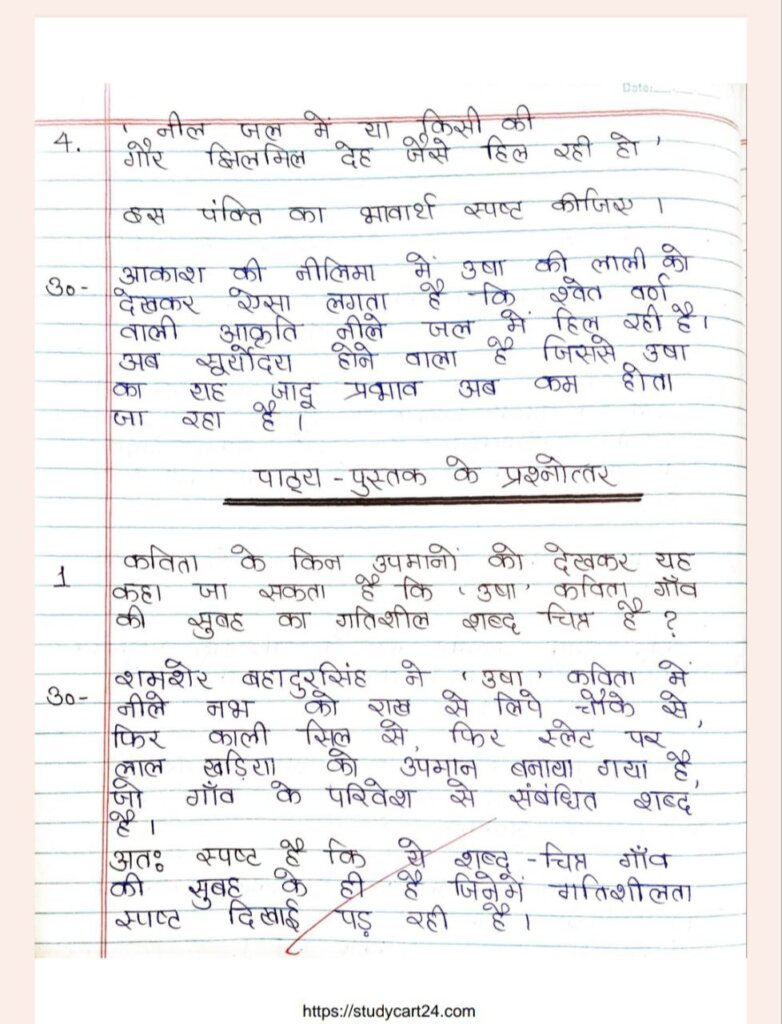 Date:
4. ' नील जल में या किसी की
गौर झिलमिल देह जैसे हिल रही हो '
इस पंक्ति का भावार्थ स्पष्ट कीजिए ।
उ०- आकाश की नीलिमा में उषा की लाली को
देखकर ऐसा लगता है कि श्वेत वर्ण
वाली आकृति नीले जल में हिल रही है।
अब सूर्योदय होने वाला है जिससे उषा
का यह जादू प्रभाव अब कम होता
जा रहा है ।
पाठ्य-पुस्तक के प्रश्नोत्तर
1 कविता के किन उपमानों को देखकर यह
कहा जा सकता है कि 'उषा' कविता गाँव
की सुबह का गतिशील शब्द चित्र है ?
उ०- शमशेर बहादुरसिंह ने 'उषा' कविता में
नीले नभ को राख से लिपे चौके से,
फिर काली सिल से, फिर स्लेट पर
लाल खड़िया को उपमान बनाया गया है,
जो गाँव के परिवेश से संबंधित शब्द
है ।
अतः स्पष्ट है कि ये शब्द-चित्र गाँव
की सुबह के ही हैं जिनेमें गतिशीलता
स्पष्ट दिखाई पड़ रही है।
https://studycart24.com